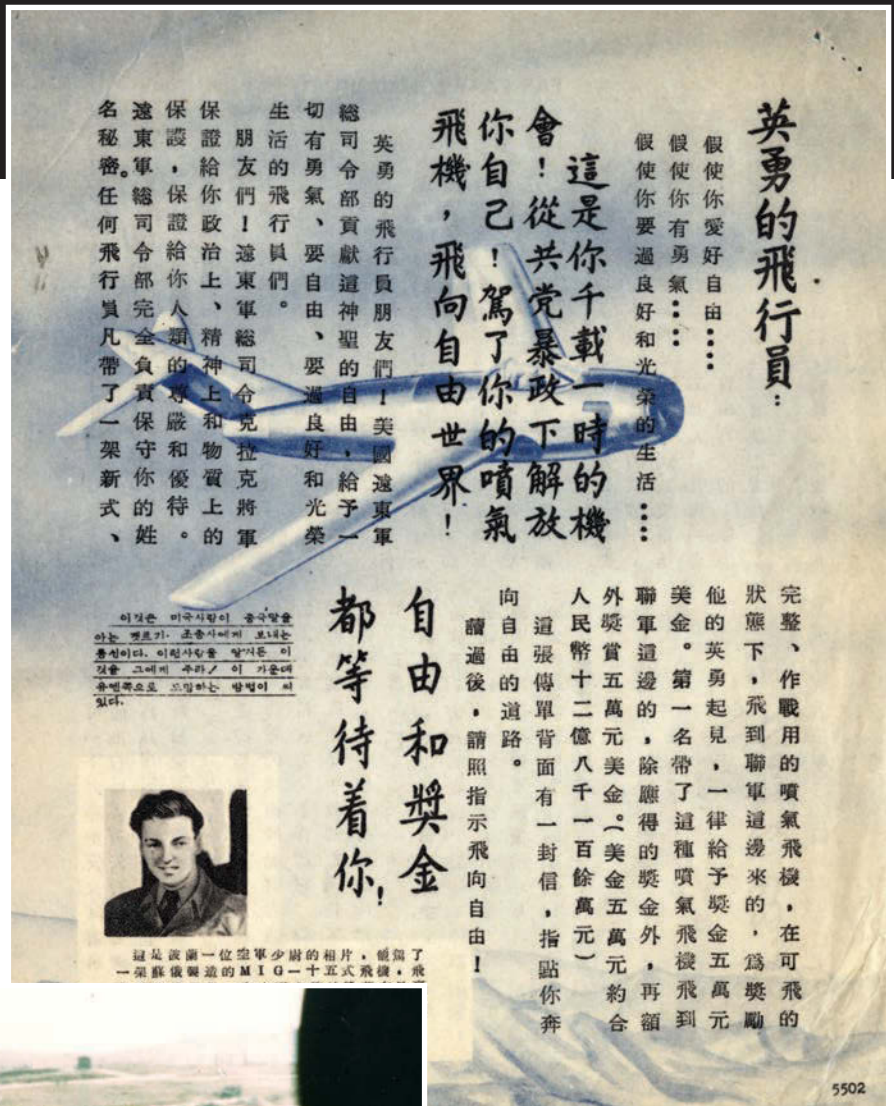 英勇的飛行員：
假使你愛好自由……
假使你有勇氣……
假使你要過良好和光榮的生活……
這是你千載一時的機
會！從共党暴政下解放
你自己！駕了你的噴氣
飛機，飛向自由世界！
英勇的飛行員朋友們！美國遠東軍
總司令部貢獻這神聖的自由，給予一
切有勇氣、要自由、要過良好和光榮
生活的飛行員們。
朋友們！遠東軍總司令克拉克將軍
保證給你政治上、精神上和物質上的
保護，保證給你人類的尊嚴和優待。
遠東軍總司令部完全負責保守你的姓
名秘密。任何飛行員凡帶了一架新式、
完整、作戰用的噴氣飛機，在可飛的
狀態下，飛到聯軍這邊來的，爲獎勵
他的英勇起見，一律給予獎金五萬元
美金。第一名帶了這種噴氣飛機飛到
聯軍這邊的，除應得的獎金外，再額
外獎賞五萬元美金。(美金五萬元約合
人民幣十二億八千一百餘萬元)
這張傳單背面有一封信，指點你奔
向自由的道路。
讀過後，請照指示飛向自由！
自由和獎金
都等待着你！
이것은 미국사람이 중국말을
아는 조종사에게 보내는
통신이다. 이런사람을 이
것을 그에게 주라! 이 가운데
유엔쪽으로 도망하는 방법이 써
있다.
這是波蘭一位空軍少尉的相片，駕了
一架蘇俄製造的MIG—十五式飛機，飛
5502